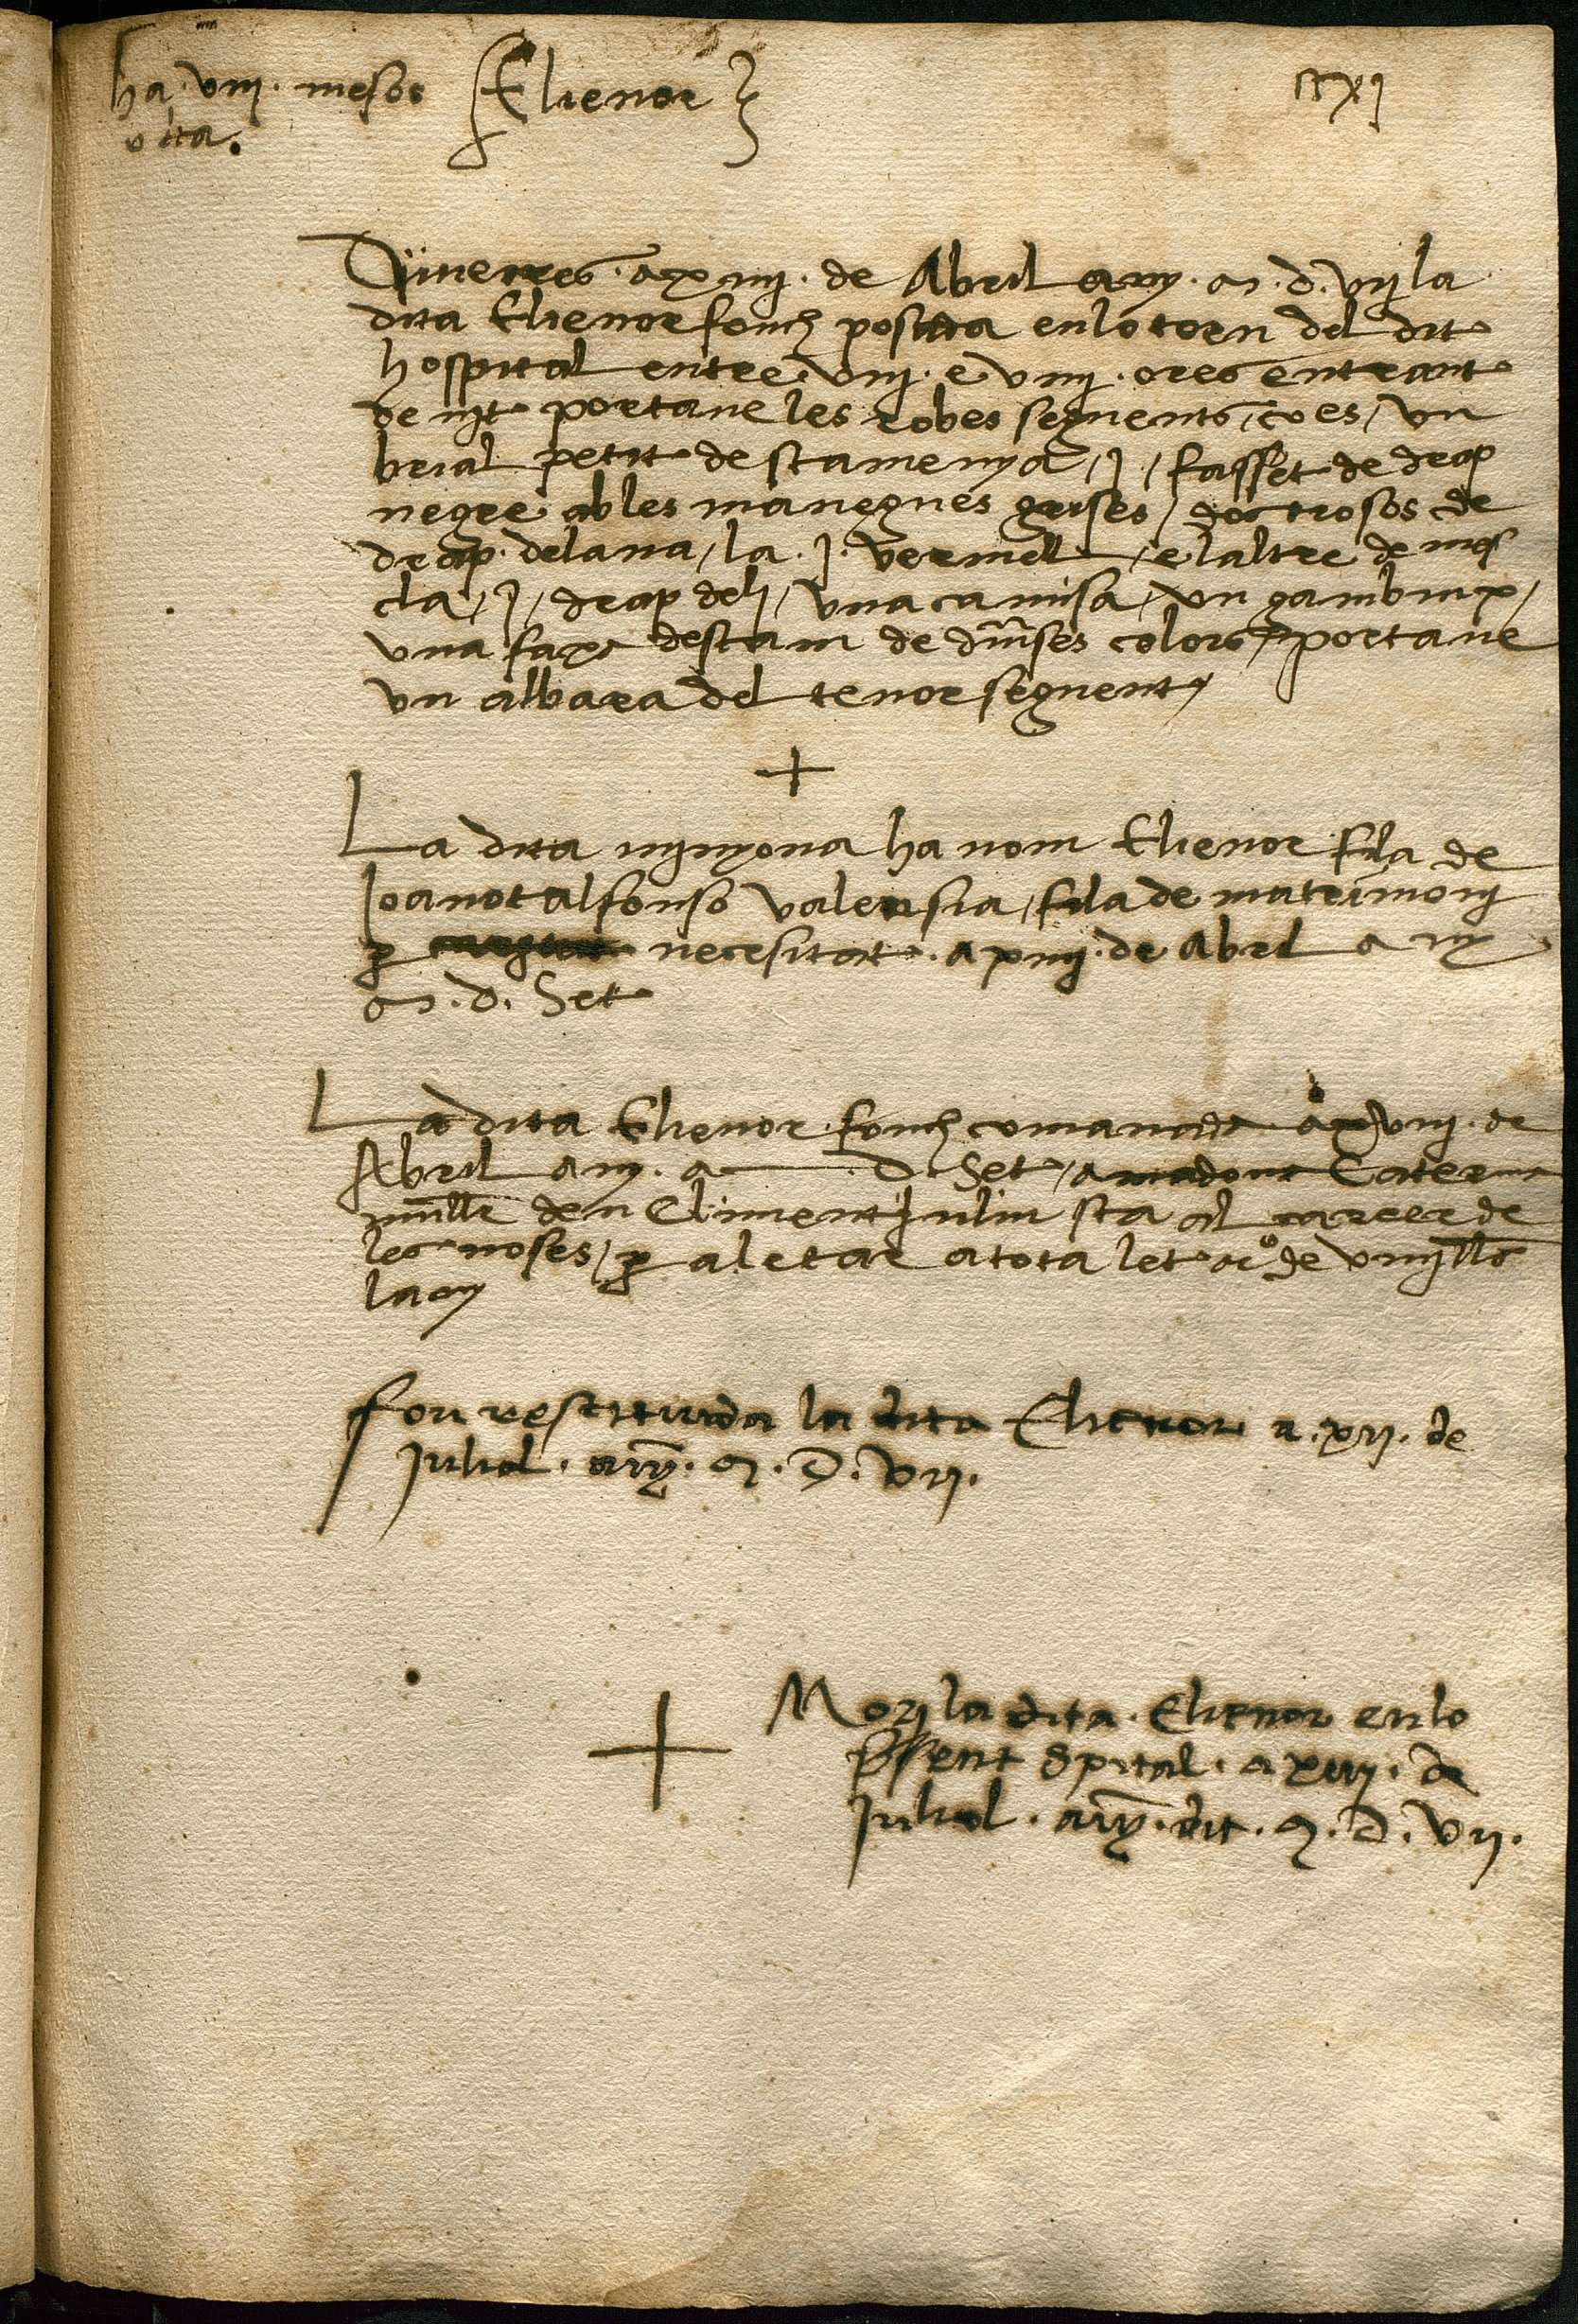 ha vııj mesos Elienor cxj
o cıta.
Diuenres a xvıııj de Abril any M D vıj la
dita Elienor fonch posada en lo torn del dit
hospital entre vıij e vıııj ores entrant
de nit portaue les robes seguents ço es vn
brial petit de stamenya j fasset de drap
negre ab les manegues grises dos trosos de
drap de lana la j vermell e laltre de mes
cla j drap de li vna camisa vn gambuix
vna faxa destam de diuerses colors portaue
vn albara del tenor seguent
La dita ninyona ha nom Elienor fila de
Joanot alfonso valensia fila de matrimonj
p necesitat a xvj de Abril any
M D Set
La dita Elienor fonch comanada a xvııj de
Abril any M D Set a madona Caterina
muller den Climent Julia sta al carrer de
les noses p aletar a tota let a rº de vııj lls
lany
fou restituida la dita Elienor a xıj de
Juliol any M D vıj
Morj la dita Elienor en lo
pssent Spital a xııj de
Juliol any dit M D vıj